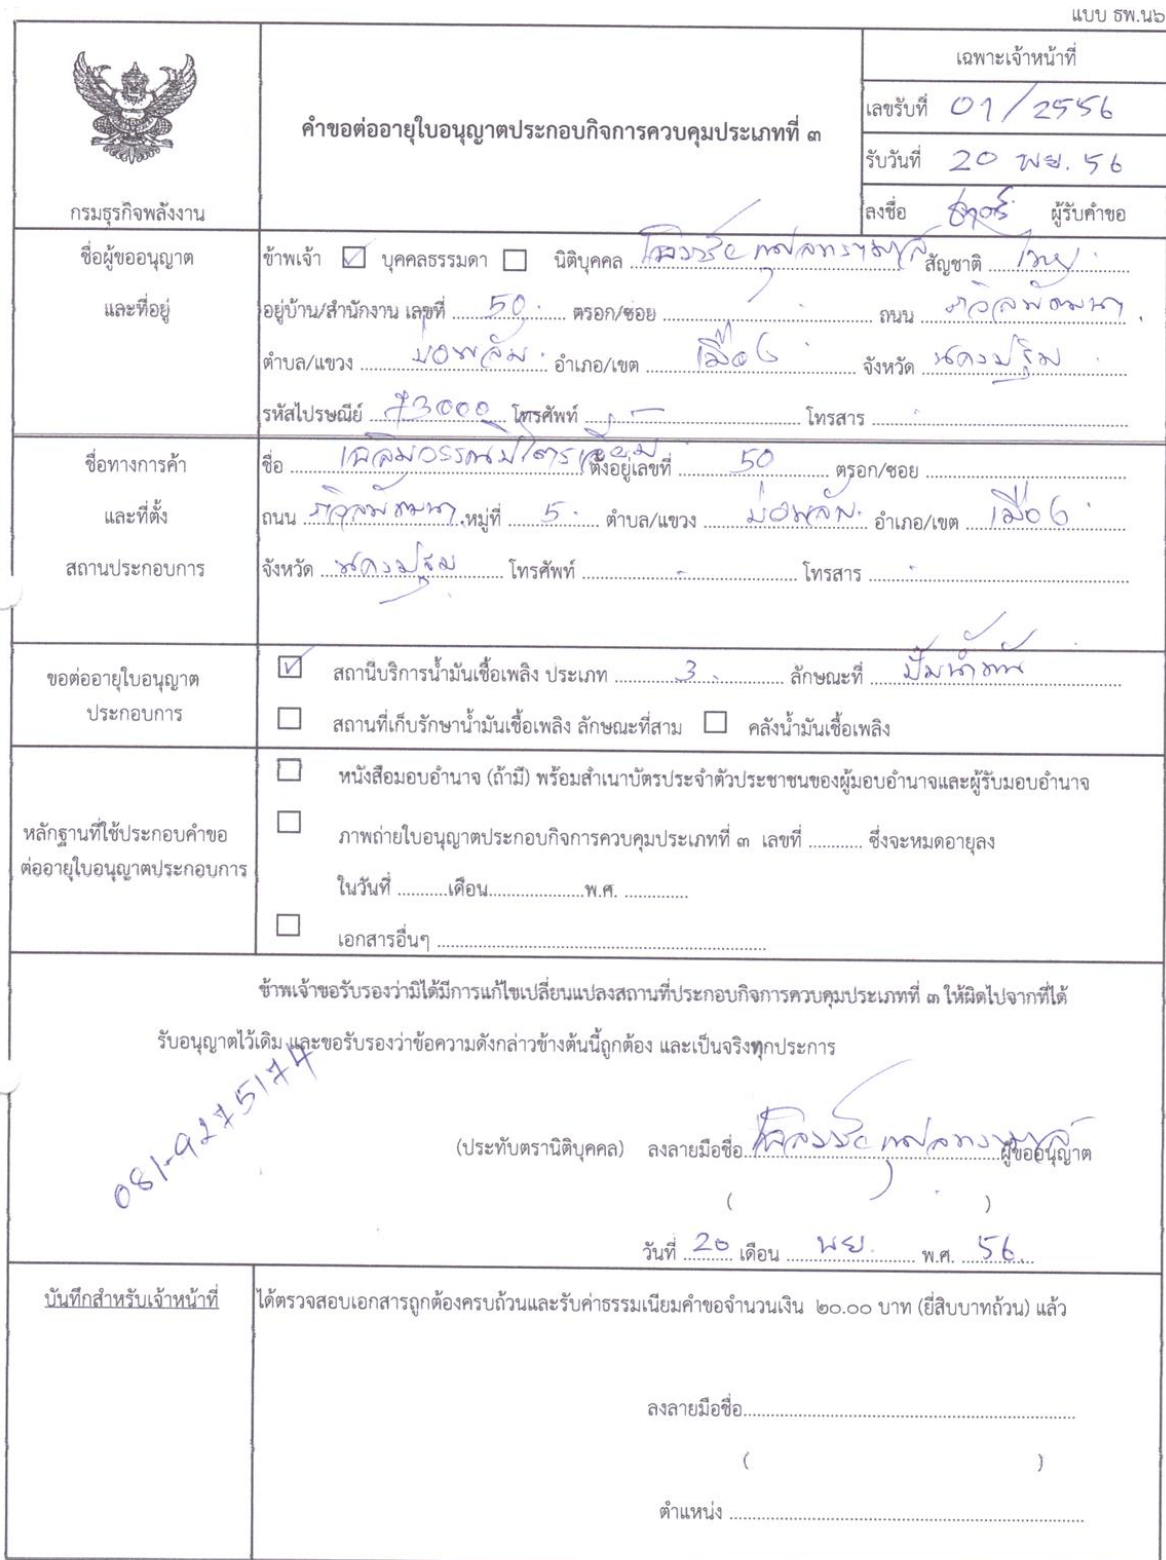 แบบ ธพ.น๖
เฉพาะเจ้าหน้าที่
เลขรับที่ 01/2556
คำขอต่ออายุใบอนุญาตประกอบกิจการควบคุมประเภทที่ ๓
รับวันที่ 20 พย. 56
กรมธุรกิจพลังงาน
ลงชื่อ ผู้รับคำขอ
ชื่อผู้ขออนุญาต
และที่อยู่
ข้าพเจ้า ☑ บุคคลธรรมดา ☐ นิติบุคคล สัญชาติ ไทย
อยู่บ้าน/สำนักงาน เลขที่ 50 ตรอก/ซอย ถนน
ตำบล/แขวง บ่อพลับ อำเภอ/เขต เมือง จังหวัด นครปฐม
รหัสไปรษณีย์ 73000 โทรศัพท์ - โทรสาร -
ชื่อทางการค้า
และที่ตั้ง
สถานประกอบการ
ชื่อ ตั้งอยู่เลขที่ 50 ตรอก/ซอย
ถนน หมู่ที่ 5 ตำบล/แขวง บ่อพลับ อำเภอ/เขต เมือง
จังหวัด นครปฐม โทรศัพท์ - โทรสาร -
ขอต่ออายุใบอนุญาต
ประกอบการ
☑ สถานีบริการน้ำมันเชื้อเพลิง ประเภท 3 ลักษณะที่ ปั๊มน้ำมัน
☐ สถานที่เก็บรักษาน้ำมันเชื้อเพลิง ลักษณะที่สาม ☐ คลังน้ำมันเชื้อเพลิง
หลักฐานที่ใช้ประกอบคำขอ
ต่ออายุใบอนุญาตประกอบการ
☐ หนังสือมอบอำนาจ (ถ้ามี) พร้อมสำเนาบัตรประจำตัวประชาชนของผู้มอบอำนาจและผู้รับมอบอำนาจ
☐ ภาพถ่ายใบอนุญาตประกอบกิจการควบคุมประเภทที่ ๓ เลขที่ ........... ซึ่งจะหมดอายุลง
ในวันที่ ..........เดือน..................พ.ศ. ............
☐ เอกสารอื่นๆ ..............................
ข้าพเจ้าขอรับรองว่ามิได้มีการแก้ไขเปลี่ยนแปลงสถานที่ประกอบกิจการควบคุมประเภทที่ ๓ ให้ผิดไปจากที่ได้
รับอนุญาตไว้เดิม และขอรับรองว่าข้อความดังกล่าวข้างต้นนี้ถูกต้อง และเป็นจริงทุกประการ
081-9275174
(ประทับตรานิติบุคคล) ลงลายมือชื่อ ผู้ขออนุญาต
( )
วันที่ 20 เดือน พย. พ.ศ. 56
บันทึกสำหรับเจ้าหน้าที่
ได้ตรวจสอบเอกสารถูกต้องครบถ้วนและรับค่าธรรมเนียมคำขอจำนวนเงิน ๒๐.๐๐ บาท (ยี่สิบบาทถ้วน) แล้ว
ลงลายมือชื่อ..............................
( )
ตำแหน่ง ..............................